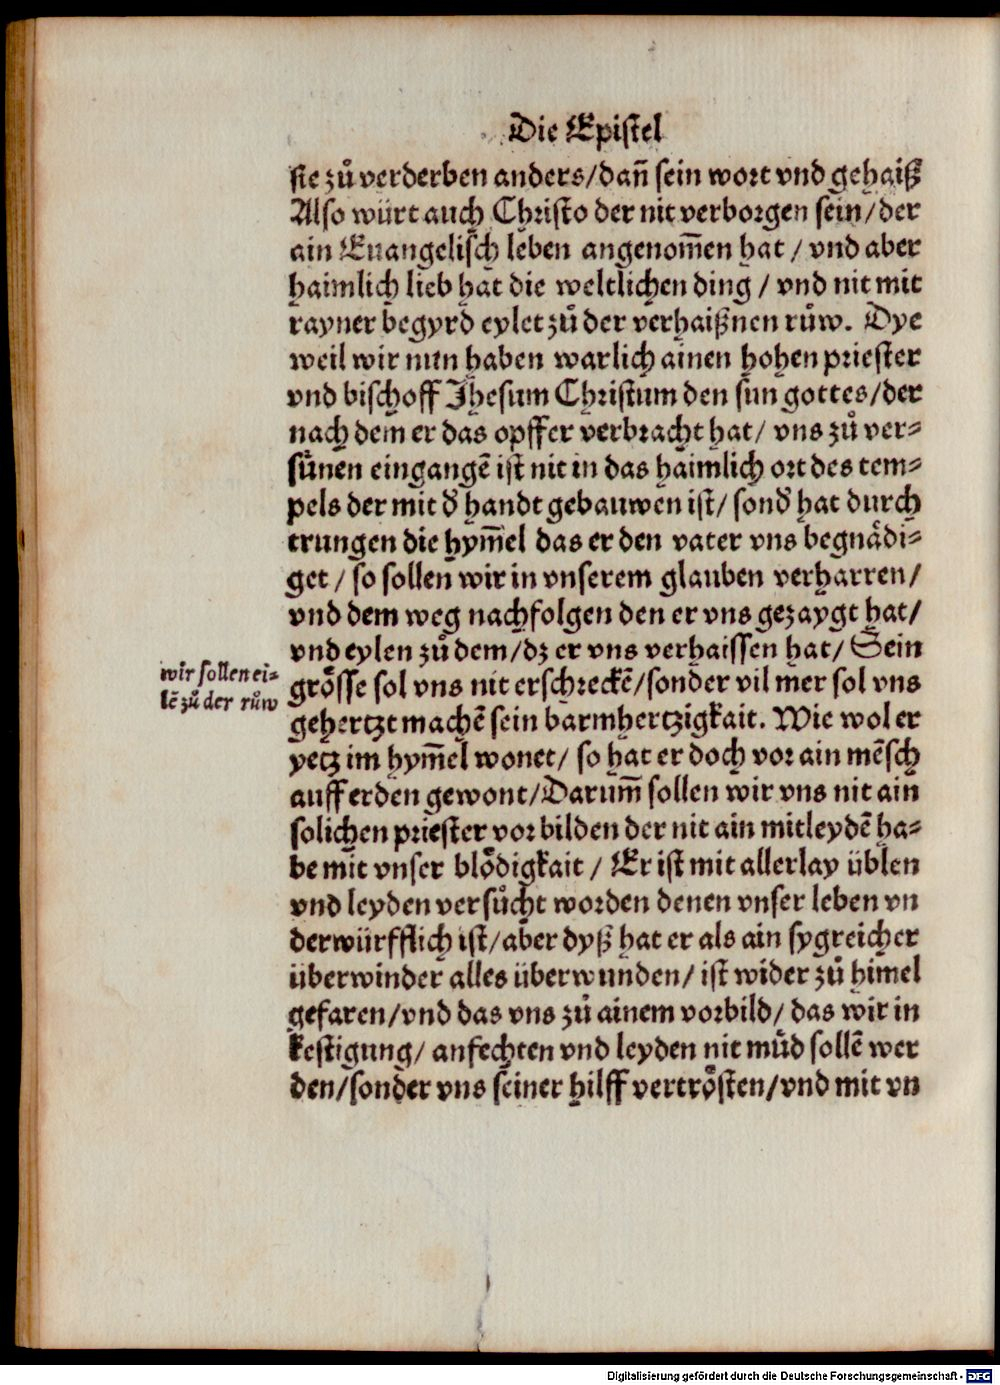 Die Epistel
sie zů verderben anders/dañ sein wort vnd gehaiß
Also würt auch Christo der nit verborgen sein/der
ain Euangelisch leben angenom̄en hat / vnd aber
haimlich lieb hat die weltlichen ding / vnd nit mit
rayner begyrd eylet zů der verhaißnen růw. Dye
weil wir nun haben warlich ainen hohen priester
vnd bischoff Jhesum Christum den sun gottes/der
nach dem er das opffer verbracht hat/ vns zů ver-
sünen eingangē ist nit in das haimlich ort des tem-
pels der mit d' handt gebauwen ist/ sond' hat durch
trungen die hym̄el das er den vater vns begnädi-
get / so sollen wir in vnserem glauben verharren/
vnd dem weg nachfolgen den er vns gezaygt hat/
vnd eylen zů dem/dz er vns verhaissen hat/ Sein
wir sollen ei-
lē zů der růw
grösse sol vns nit erschreckē/sonder vil mer sol vns
gehertzt machē sein barmhertzigkait. Wie wol er
yetz im hym̄el wonet/ so hat er doch vor ain mēsch
auff erden gewont/Darum̄ sollen wir vns nit ain
solichen priester vorbilden der nit ain mitleydē ha-
be mit vnser blödigkait / Er ist mit allerlay üblen
vnd leyden versůcht worden denen vnser leben vn
derwürfflich ist/aber dyß hat er als ain sygreicher
überwinder alles überwunden/ ist wider zů himel
gefaren/vnd das vns zů ainem vorbild/ das wir in
kestigung/ anfechten vnd leyden nit můd sollē wer
den/sonder vns seiner hilff vertrösten/vnd mit vn
Digitalisierung gefördert durch die Deutsche Forschungsgemeinschaft - DFG